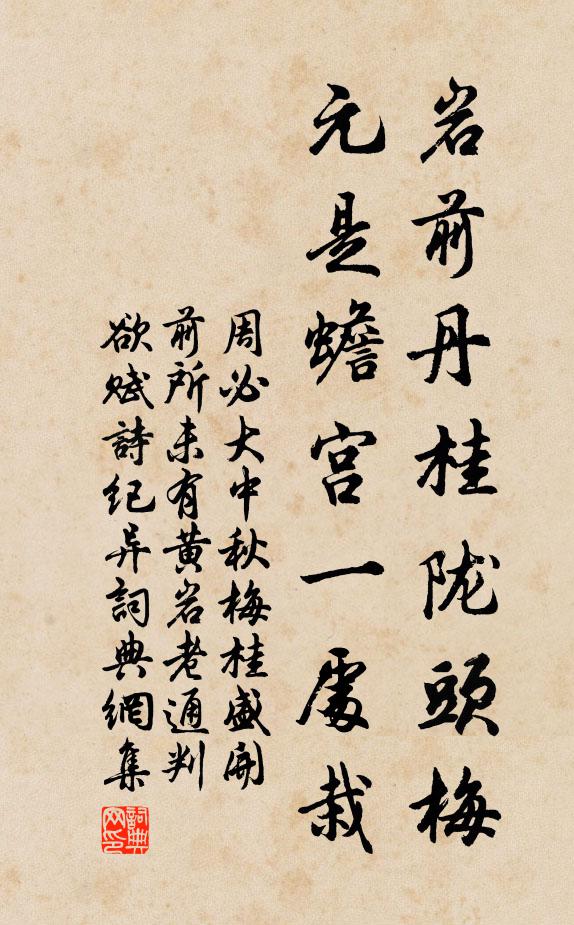 岩前丹桂陇頭梅
元是蟾宫一處栽
周必大中秋梅桂盛開
前所未有黄岩老通判
欲赋詩纪异詞典網集
詞典网印